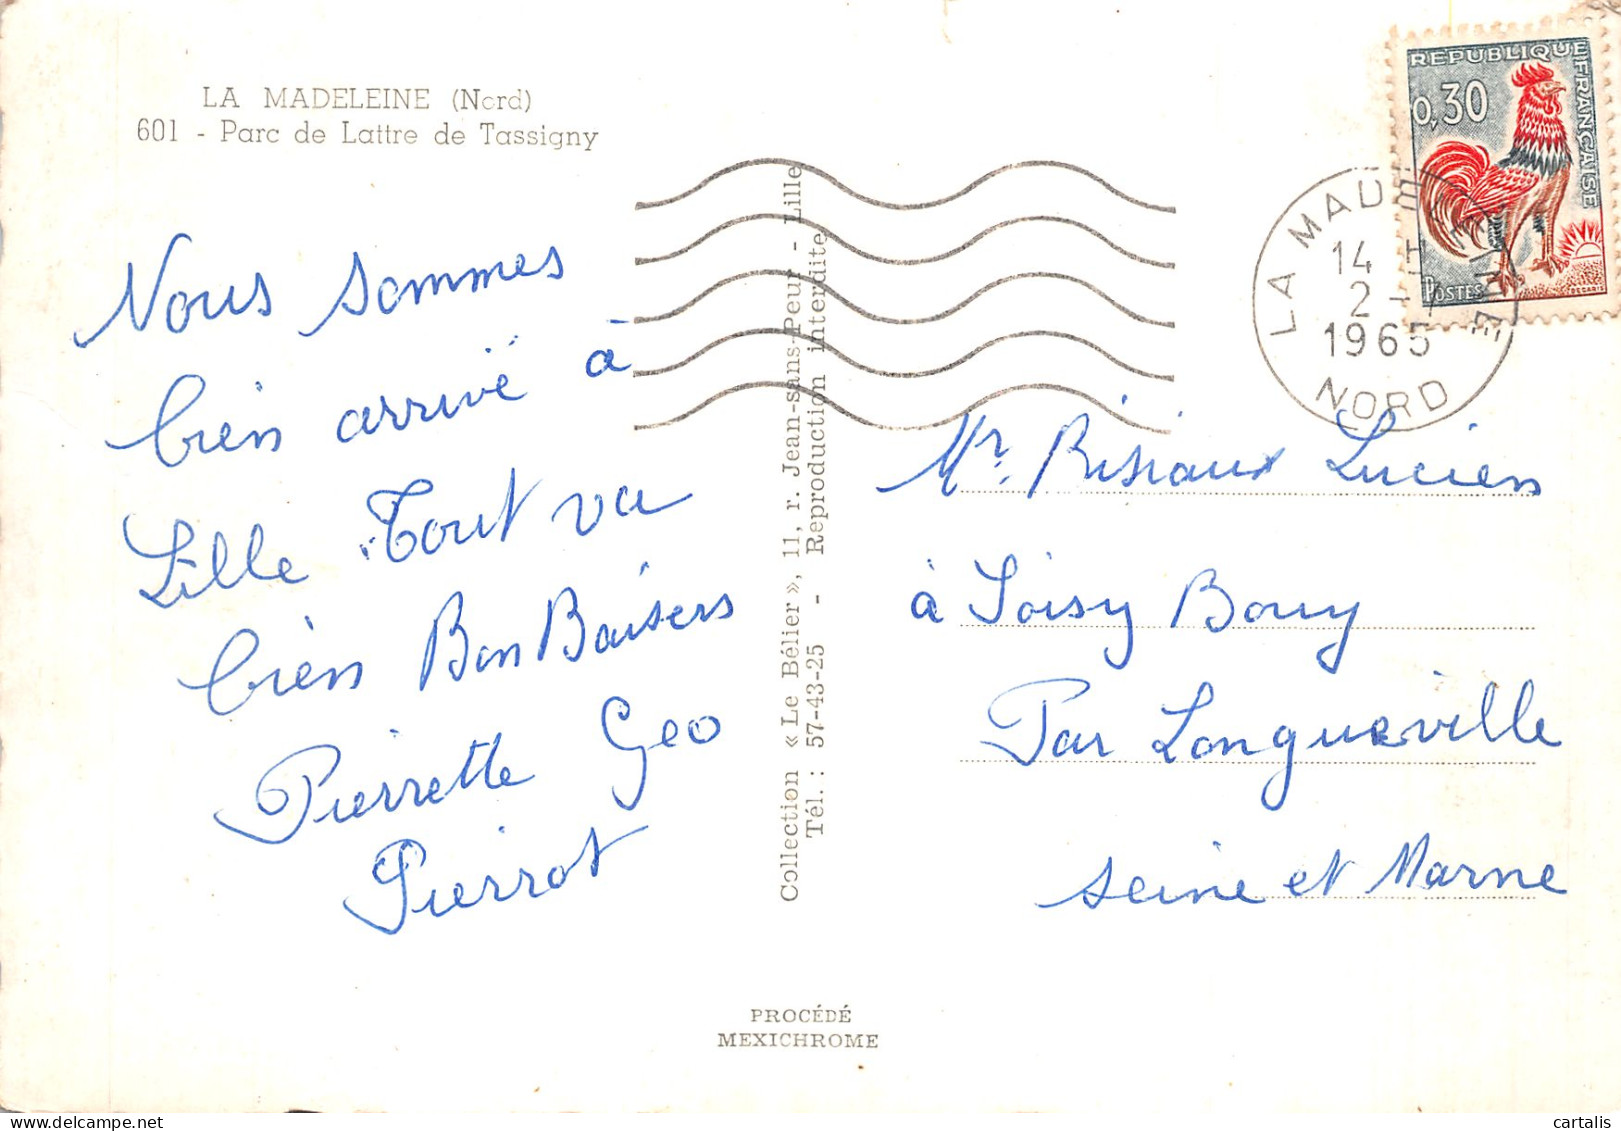 LA MADELEINE (Nord)
601 - Parc de Lattre de Tassigny
Nous sommes
bien arrivé à
Lille Tout va
bien Bon Baisers
Pierrette Geo
Pierrot
Collection « Le Bélier », 11, r. Jean-sans-Peur - Lille
Tél. : 57-43-25 - Reproduction interdite
PROCÉDÉ
MEXICHROME
REPUBLIQUE FRANÇAISE
0,30
POSTES
DECARIS
LA MADELEINE
14 H
2 -
1965
NORD
Mr. Risiaux Lucien
à Soisy Bouy
Par Longueville
seine et Marne
cartalis